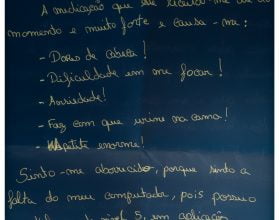 A medicação que me receita-me até ao
momento é muito forte e causa-me:
- Dores de cabeça!
- Dificuldade em me focar!
- Ansiedade!
- Faz com que urine na cama!
- Apetite enorme!
Sinto-me aborrecido, porque sinto a
falta do meu computador, pois possuo
5, em aplicação